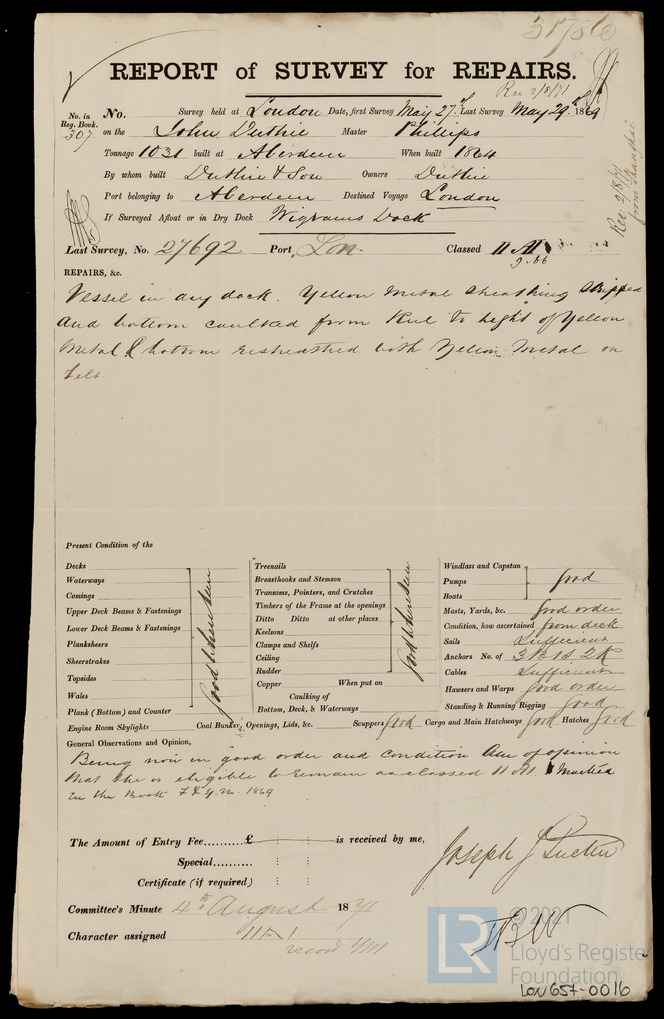 31786
REPORT of SURVEY for REPAIRS.
Rec 2/8/71
No. in Reg. Book. 307
No. Survey held at London Date, first Survey May 27th Last Survey May 29th 1869
on the John Duthie Master Phillips
Tonnage 1031 built at Aberdeen When built 1864
By whom built Duthie & Son Owners Duthie
Port belonging to Aberdeen Destined Voyage London
If Surveyed Afloat or in Dry Dock Wigrams Dock
Rec 2/8/71 from Shanghai
Last Survey, No. 27692 Port, Lon. Classed 11 A1
REPAIRS, &c.
Vessel in dry dock. Yellow Metal Sheathing Stripped
and bottom caulked from Keel to height of Yellow
Metal & bottom resheathed with Yellow Metal on
Felt.
Present Condition of the
Decks
Waterways
Comings
Upper Deck Beams & Fastenings
Lower Deck Beams & Fastenings
Planksheers
Sheerstrakes
Topsides
Wales
Plank (Bottom) and Counter
Good where seen
Treenails
Breasthooks and Stemson
Transoms, Pointers, and Crutches
Timbers of the Frame at the openings
Ditto Ditto at other places
Keelsons
Clamps and Shelfs
Ceiling
Rudder
Good where seen
Copper When put on
Caulking of
Bottom, Deck, & Waterways
Windlass and Capstan
Pumps
Boats
good
Masts, Yards, &c. good order
Condition, how ascertained from deck
Sails Sufficient
Anchors No. of 3B 1S 2K
Cables Sufficient
Hawsers and Warps good order
Standing & Running Rigging good
Engine Room Skylights Coal Bunker, Openings, Lids, &c. Scuppers good Cargo and Main Hatchways good Hatches good
General Observations and Opinion,
Being now in good order and condition Am of opinion
that she is eligible to remain as classed 11 A1. & Marked
in the Book F & Y.M. 1869
The Amount of Entry Fee.........£ : : is received by me,
Special.......... : :
Certificate (if required) : :
Joseph J
Committee's Minute 4th August 1871
Character assigned 11A1
record YM
LR
© 2021
Lloyd's Register
Foundation
LON657-0016